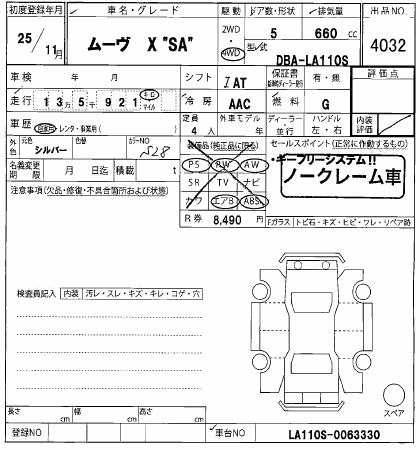 初度登録年月 車名・グレード 駆動 ドア数・形状 排気量 出品NO
25/11月 ムーヴ X "SA" 2WD・4WD 5 660 cc 4032
型式 DBA-LA110S
車検 年 月 シフト I AT 保証書 有・無 評価点
走行 13万5千921 キロ マイル 冷房 AAC 燃料 G
車歴 自家用・レンタ・事業用( ) 定員 4人 外車モデル 年 ディーラー・並行 ハンドル 左・右 内装評価
外色 元色 シルバー 色替 カラーNO S28
装備品(純正品に限る)
セールスポイント(正常に作動するもの)
名義変更期限 月 日迄 積載 t
PS PW AW
SR TV ナビ
カワ エアB ABS
キーフリーシステム!!
ノークレーム車
注意事項(欠品・修復・不具合箇所および状態)
R券 8,490 円
Fガラス トビ石・キズ・ヒビ・ワレ・リペア跡
検査員記入 内装 汚レ・スレ・キズ・キレ・コゲ・穴
スペア
長さ cm 幅 cm 高さ cm
登録NO 車台NO LA110S-0063330